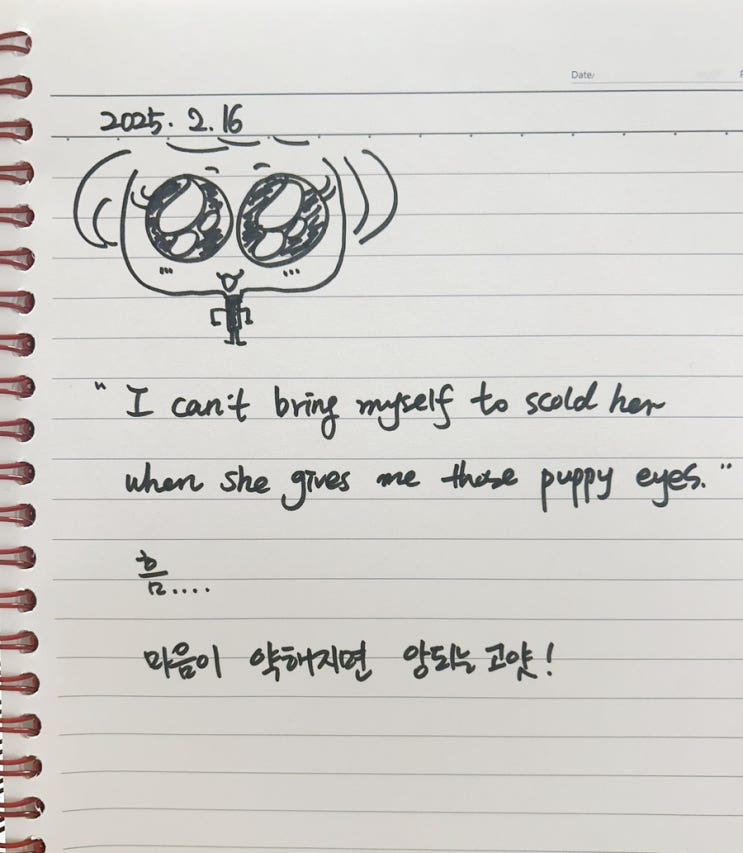 Date/
2025. 2. 16
" I can't bring myself to scold her
when she gives me those puppy eyes. "
흠....
마음이 약해지면 앙되는 고얏!